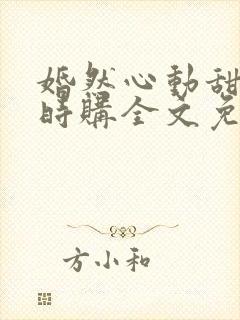 婚然心動甜
時購全文免
方小和